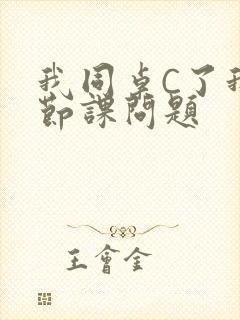 我同桌C了我
節課問題
王會全